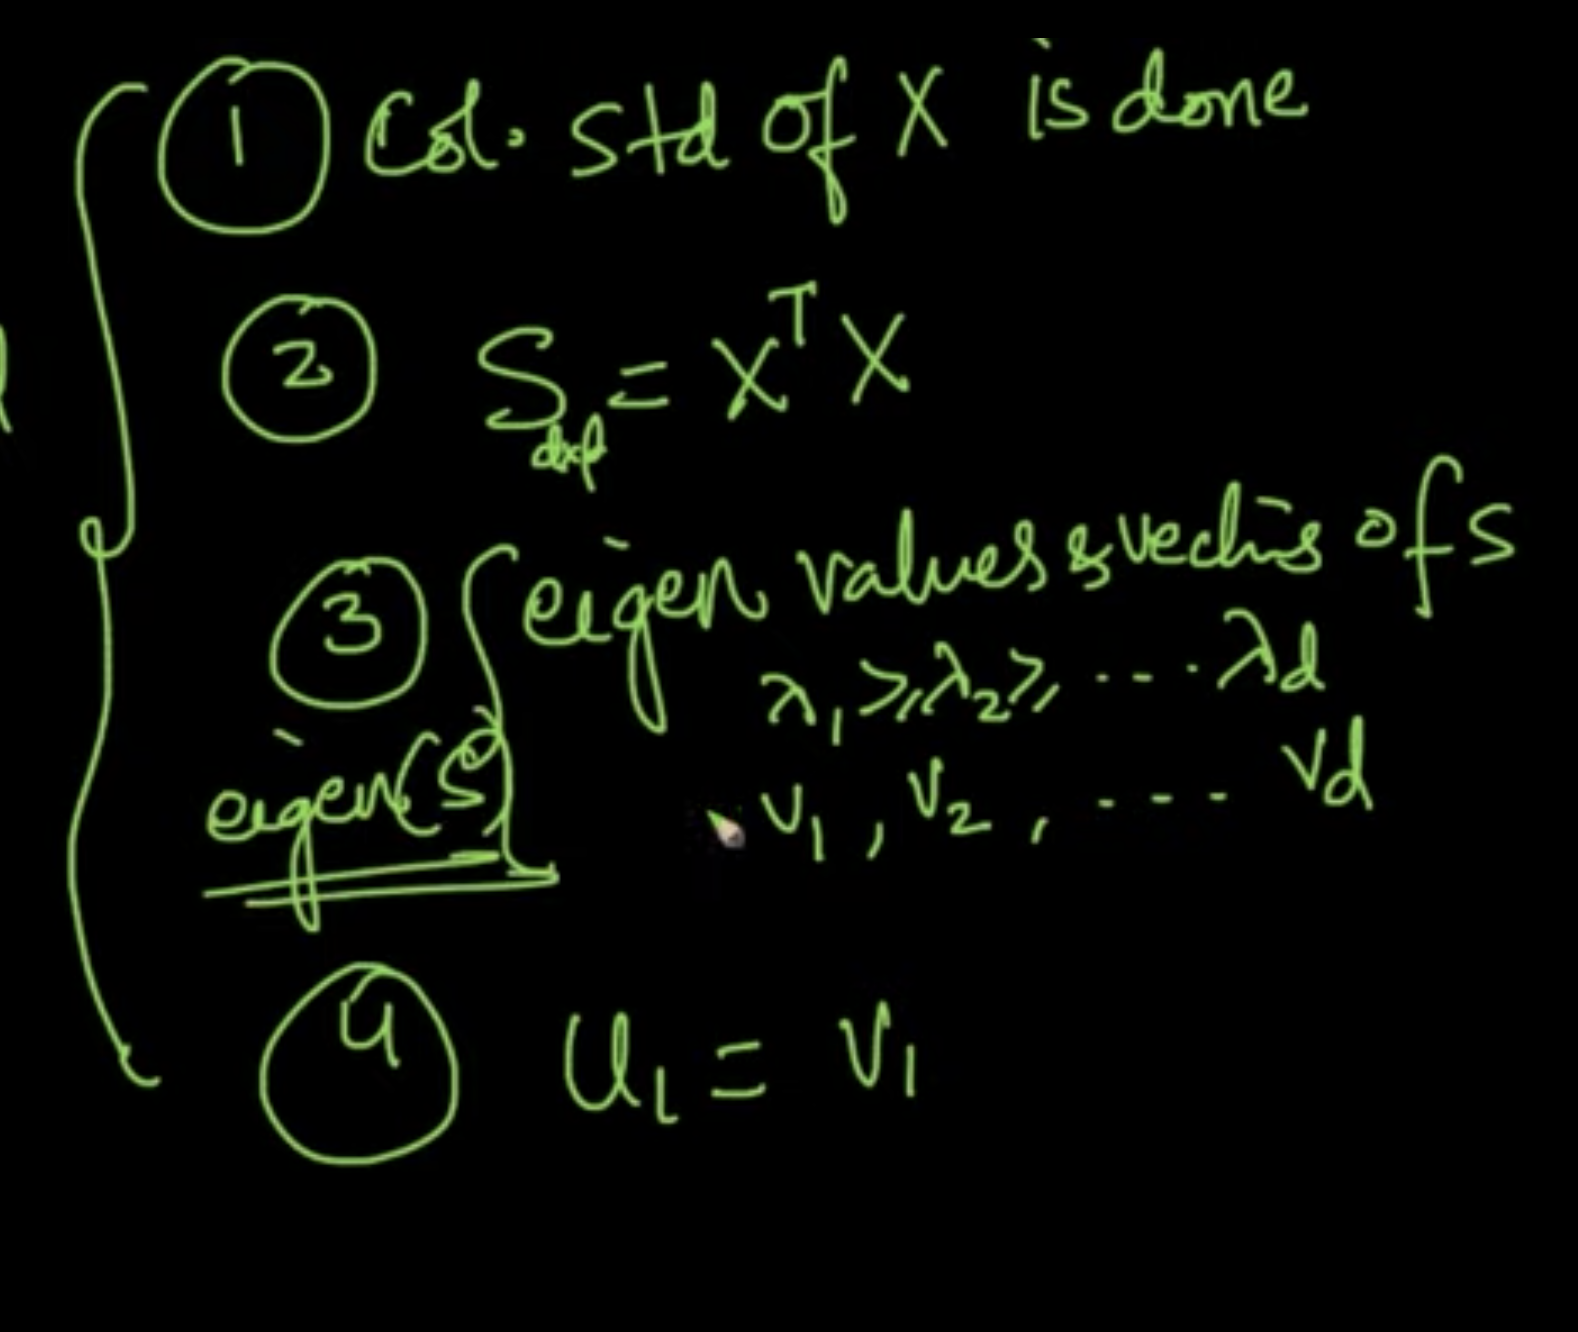 1 Col. std of X is done
2 S_{dxd} = X^T X
3 eigen values & vectors of S
λ_1 ≥ λ_2 ≥ ... λ_d
eigen(S)
v_1, v_2, ... v_d
4 U_1 = V_1